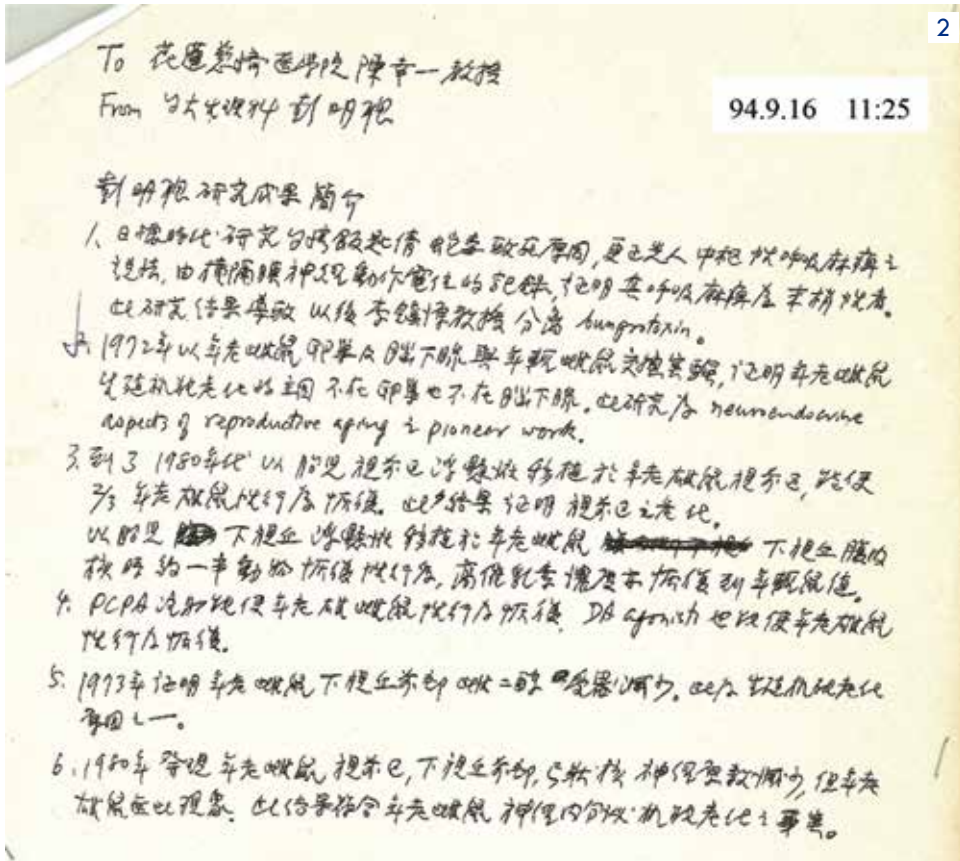 2
To 花蓮慈濟医学院 陳幸一教授
From 台大生理科 彭明聰
94.9.16 11:25
彭明聰研究成果簡介
1、日據時代研究台灣飯匙倩蛇毒致死原因,更正先人中枢性呼吸麻痺之
說法,由橫隔膜神经動作電位的記錄,证明其呼吸麻痺為末梢性者。
此研究结果導致以後李鎮源教授分离 bungrotoxin。
2. 1972年以年老雌鼠卵巢及腦下腺與年輕雌鼠交換实驗,证明年老雌鼠
生殖机能老化的主因不在卵巢也不在腦下腺。此研究為 neuroendocrine
aspects of reproductive aging 之 pioneer work.
3. 到了1980年代 以胎児視前区浮懸液移植於年老雄鼠視前区,能使
2/3 年老雄鼠性行為恢復。此結果证明視前区之老化。
以胎児下視丘浮懸液移植於年老雌鼠下視丘腹内
核時約一半動物恢復性行為,高催乳素濃度亦恢復到年輕鼠值。
4. PCPA 注射能使年老雄雌鼠性行為恢復. DA agonist 也能使年老雄鼠
性行為恢復。
5. 1973年证明年老雌鼠下視丘前部雌二醇受器减少。此為生殖机能老化
原因之一。
6. 1980年發現年老雌鼠視前区,下視丘前部,弓狀核神经原数减少,但年老
雄鼠無此現象. 此结果符合年老雌鼠神经内分泌机能老化之事実。